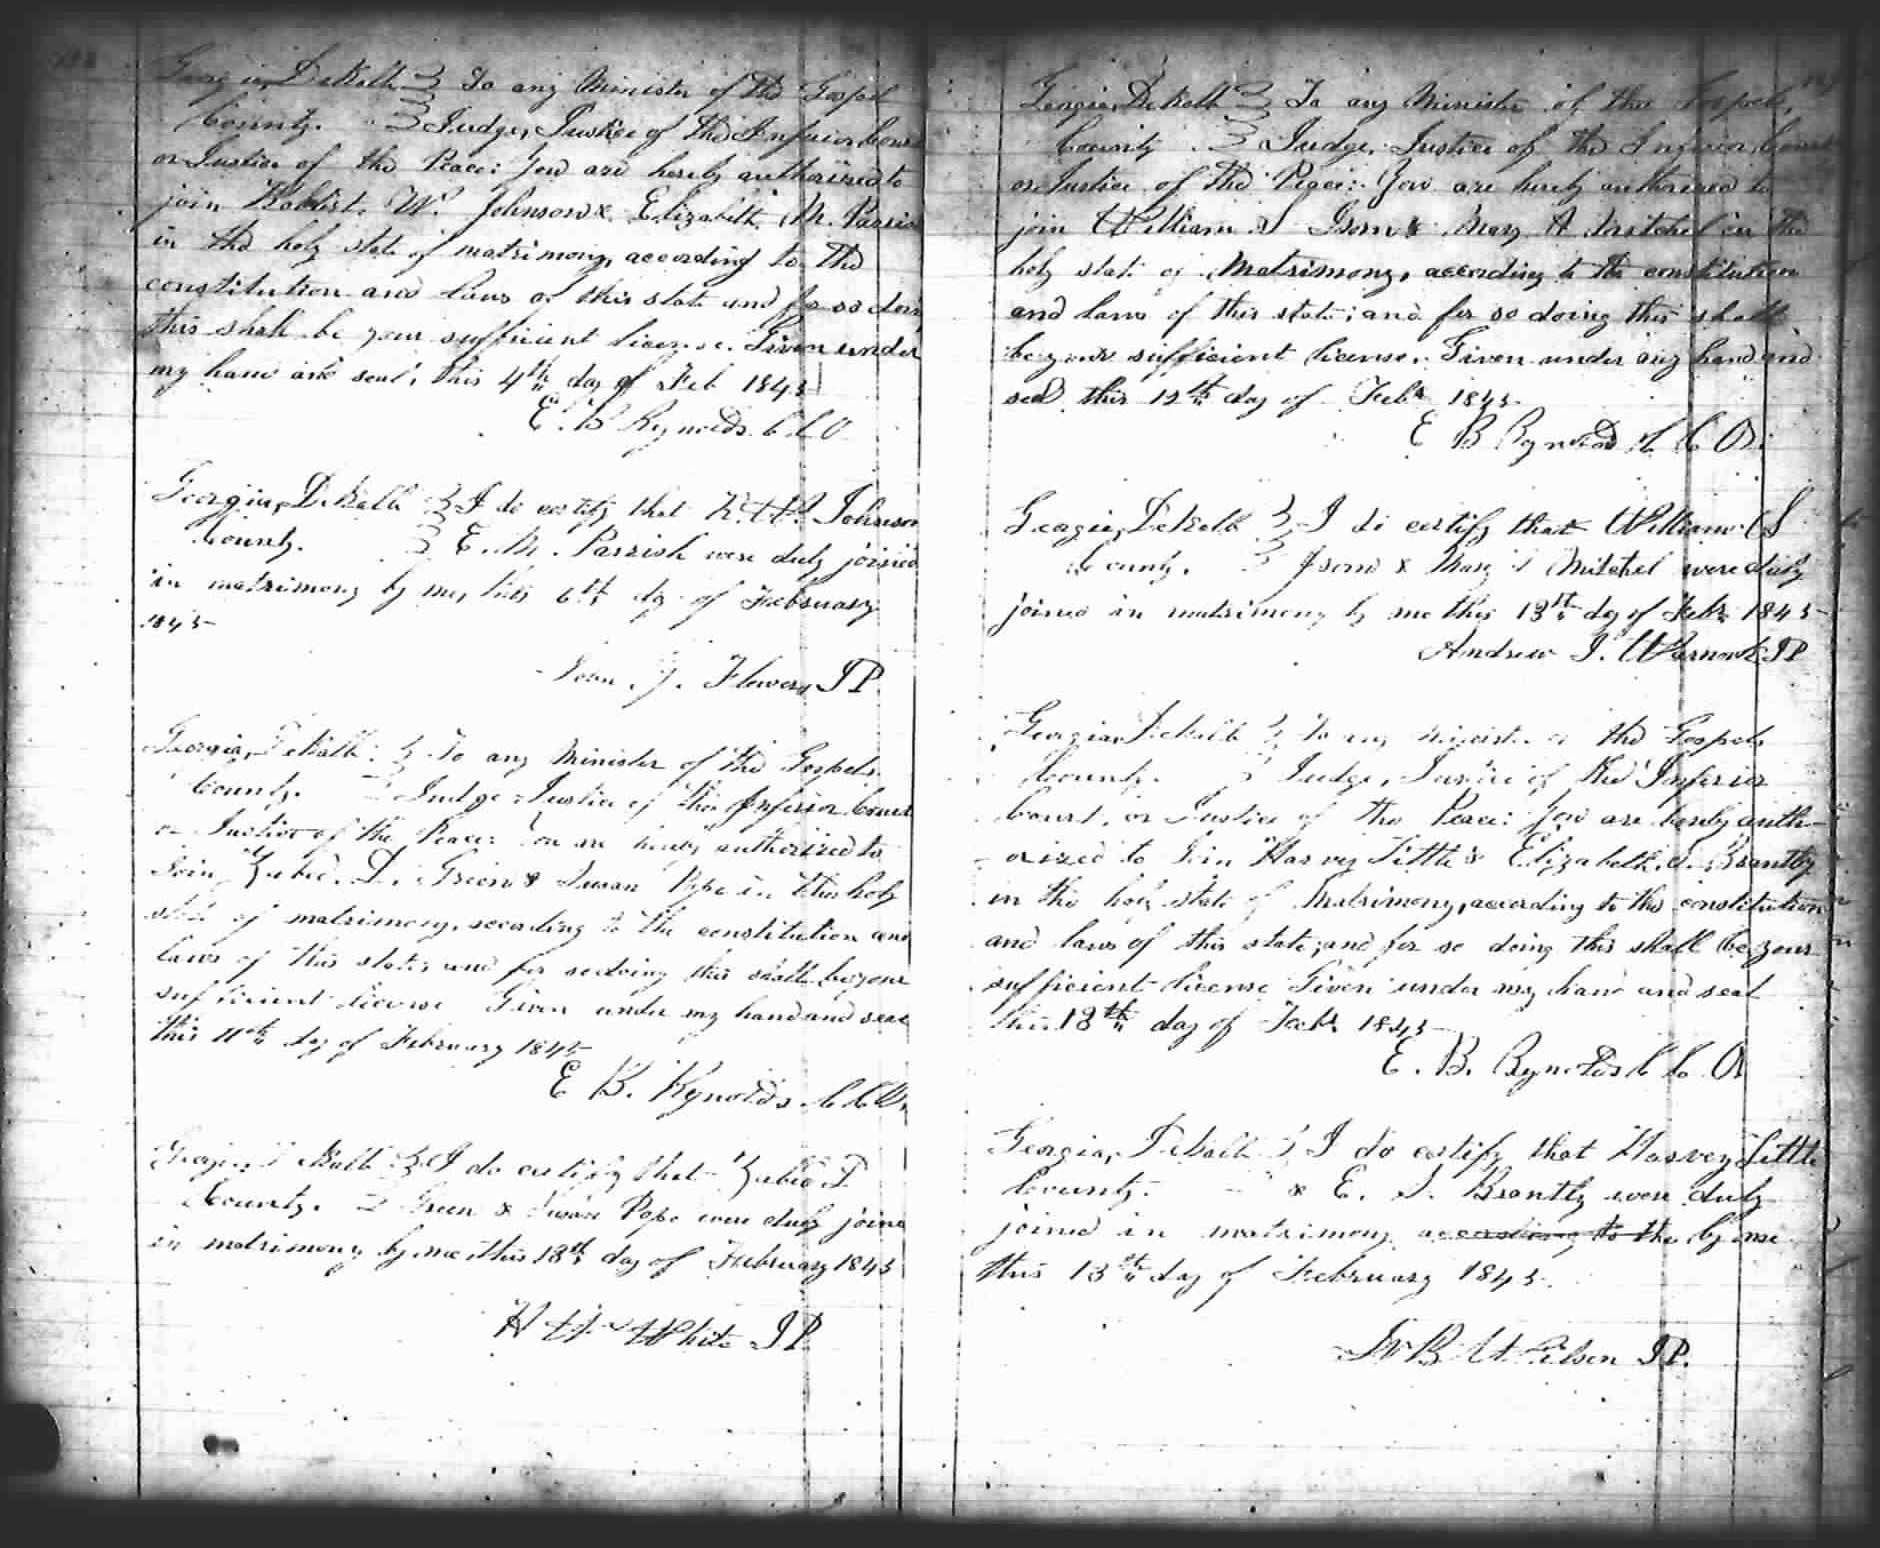 Georgia, DeKalb } To any Minister of the Gospel
County. } Judge, Justice of the Inferior Court
or Justice of the Peace: You are hereby authorized to
join W. Johnson & Elizabeth M. Parrish
in the holy state of matrimony, according to the
constitution and laws of this state and for so doing
this shall be your sufficient license. Given under
my hand and seal, this 4th day of Feb 1845
E. B Reynolds. C. C. O
Georgia, DeKalb } I do certify that Johnson
County. } E. M. Parrish were duly joined
in matrimony by me, this 6th dy of February
1845
John Flowers, JP
Georgia, DeKalb } To any Minister of the Gospel
County. } Judge Justice of the Inferior Court
or Justice of the Peace: You are hereby authorized to
join D. Green & Susan Pope in the holy
state of matrimony, according to the constitution and
laws of this state, and for so doing this shall be your
sufficient license Given under my hand and seal
this 11th day of February 1845
E B. Reynolds. C. C. O.
Georgia, DeKalb } I do certify that
County. } Green & Susan Pope were duly joind
in matrimony by me this 13th day of February 1845
White JP
Georgia, DeKalb } To any Minister of the Gospel,
County. } Judge, Justice of the Inferior Court
or Justice of the Peace: You are hereby authorized to
join William S Isom & Mary A Mitchel in the
holy state of Matrimony, according to the constitution
and laws of this state; and for so doing this shall
be your sufficient license. Given under my hand and
seal this 12th day of Feb. 1845
E B Reynolds C. C. O.
Georgia, DeKalb } I do certify that William S
County. } Isom & Mary Mitchel were duly
joined in matrimony by me this 13th day of Feb. 1845
Andrew J. JP
Georgia, DeKalb } To any Minister of the Gospel,
County. } Judge, Justice of the Inferior
Court, or Justice of the Peace: You are hereby auth-
orized to join Harvey Little & Elizabeth Brantly
in the holy state of Matrimony, according to the constitution
and laws of this state; and for so doing this shall be your
sufficient license Given under my hand and seal
this 13th day of Feb. 1845
E. B. Reynolds C. C. O
Georgia, DeKalb } I do certify that Harvey Little
County. & E. S. Brantly were duly
joined in matrimony according to the by me
this 13th day of February 1845.
Wilson JP.